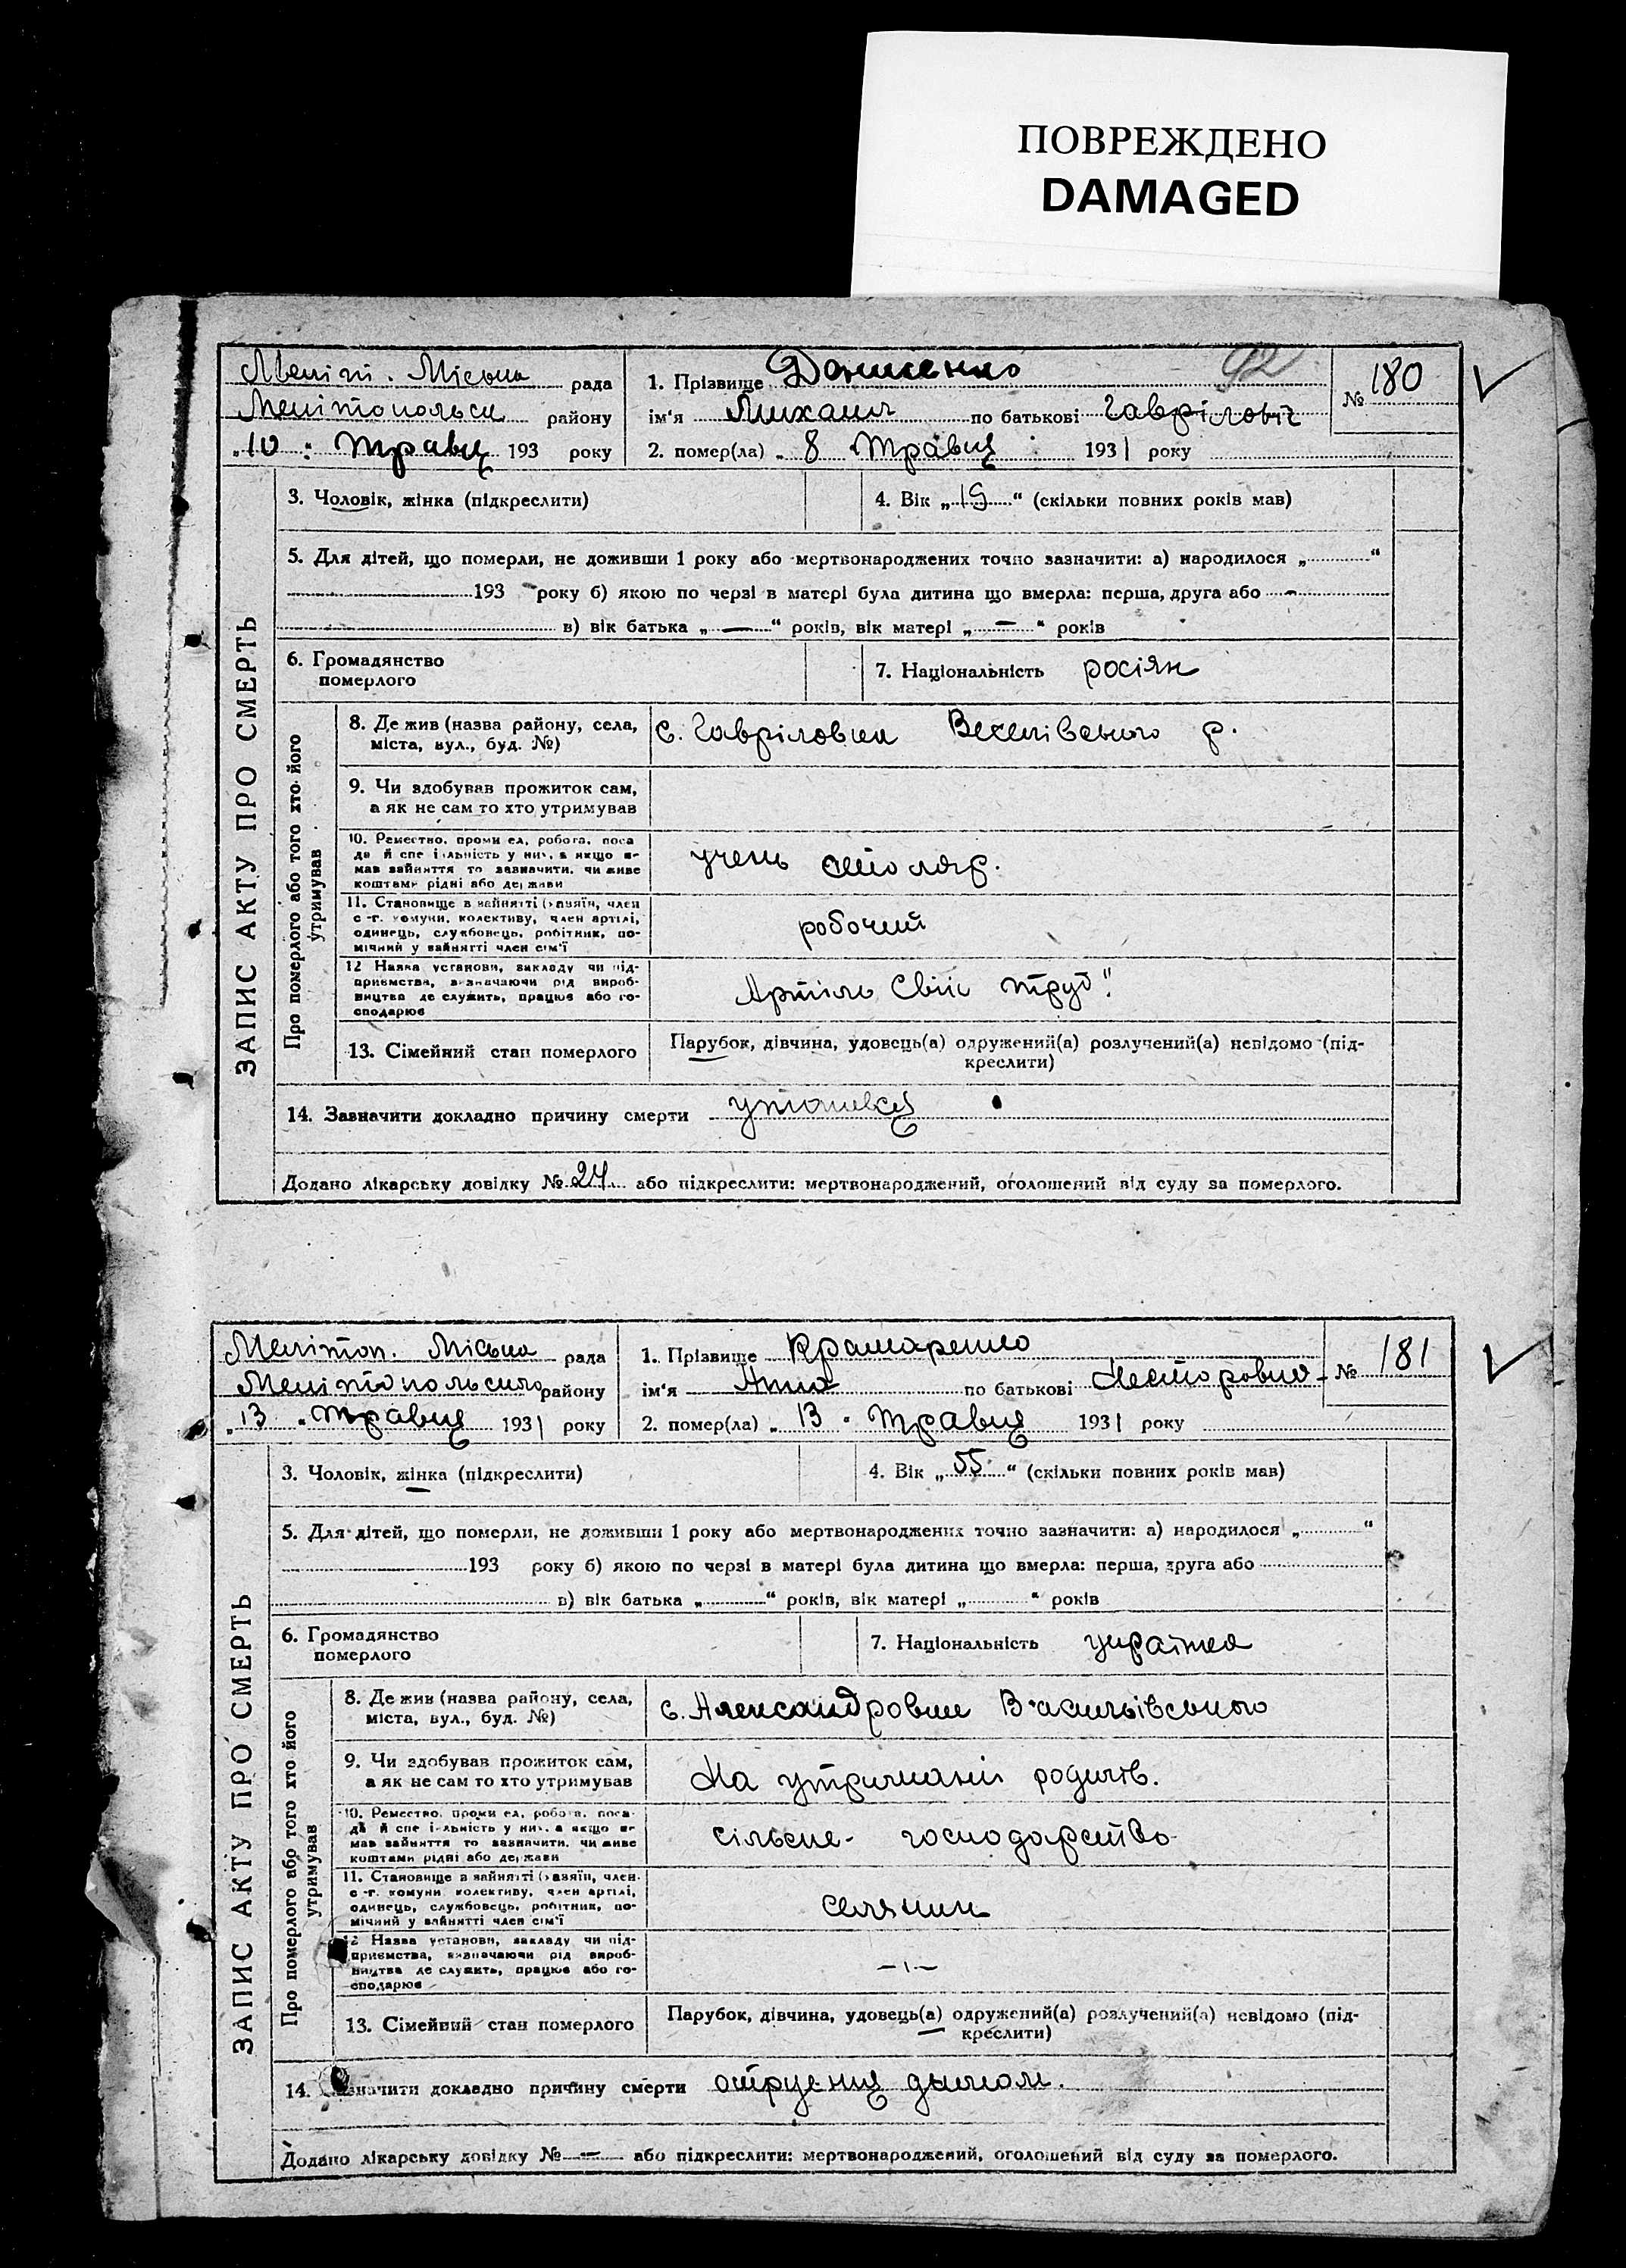 ПОВРЕЖДЕНО
DAMAGED
92
Меліт. Міська рада
Мелітопольськ району
„10“ Травня 193 року
1. Прізвище Данченко
ім'я Михаил по батькові Гаврілович
2. помер(ла) „8 Травня 1931 року
№ 180
ЗАПИС АКТУ ПРО СМЕРТЬ
3. Чоловік, жінка (підкреслити)
4. Вік „19“ (скільки повних років мав)
5. Для дітей, що померли, не доживши 1 року або мертвонароджених точно зазначити: а) народилося „ “
193 року б) якою по черзі в матері була дитина що вмерла: перша, друга або -
в) вік батька „—“ років, вік матері „—“ років
6. Громадянство
померлого
7. Національність росіян
Про померлого або того хто його
утримував
8. Де жив (назва району, села,
міста, вул., буд. №)
с. Гавріловка Веселівського р.
9. Чи здобував прожиток сам,
а як не сам то хто утримував
10. Ремество, проми ел, робота, поса
да й спе і льність у них, а якщо н-
мав зайняття то зазначити, чи живе
коштами рідні або держави
учень столяр.
11. Становище в зайнятті (хазяїн, член
с-г. комуни, колективу, член артілі,
одинець, службовець, робітник, по-
мічний у зайнятті член сім'ї
робочий
12 Назва установи, закладу чи під-
приємства, визначаючи рід вироб-
ництва де служить, працює або го-
сподарює
Артіль Свій труд"
13. Сімейний стан померлого
Парубок, дівчина, удовець(а) одружений(а) розлучений(а) невідомо (під-
креслити)
14. Зазначити докладно причину смерти
Додано лікарську довідку № 24 або підкреслити: мертвонароджений, оголошений від суду за померлого.
Мелітоп. Міська рада
Мелітопольського району
„13“ Травня 1931 року
1. Прізвище Крамаренко
ім'я Анна по батькові Несторовна
2. помер(ла) „13“ Травня 1931 року
№ 181
ЗАПИС АКТУ ПРО СМЕРТЬ
3. Чоловік, жінка (підкреслити)
4. Вік „55“ (скільки повних років мав)
5. Для дітей, що померли, не доживши 1 року або мертвонароджених точно зазначити: а) народилося „ “
193 року б) якою по черзі в матері була дитина що вмерла: перша, друга або
в) вік батька „ “ років, вік матері „ “ років
6. Громадянство
померлого
7. Національність українка
Про померлого або того хто його
утримував
8. Де жив (назва району, села,
міста, вул., буд. №)
с. Александровки Васильівського
9. Чи здобував прожиток сам,
а як не сам то хто утримував
На утриманні родичів.
10. Ремество, проми ел, робота, поса-
да й спе і-льність у них, а якщо н-
мав зайняття то зазначити, чи живе
коштами рідні або держави
сільське- господарство
11. Становище в зайнятті (хазяїн, член
с-г. комуни колективу, член артілі,
одинець, службовець, робітник, по-
мічний у зайнятті член сім'ї
селянин
12 Назва установи, закладу чи під-
приємства, визначаючи рід вироб-
ництва де служить, працює або го-
сподарює
-ı-
13. Сімейний стан померлого
Парубок, дівчина, удовець(а) одружений(а) розлучений(а) невідомо (під-
креслити)
14. Зазначити докладно причину смерти отруєння дымом.
Додано лікарську довідку № — або підкреслити: мертвонароджений, оголошений від суду за померлого.